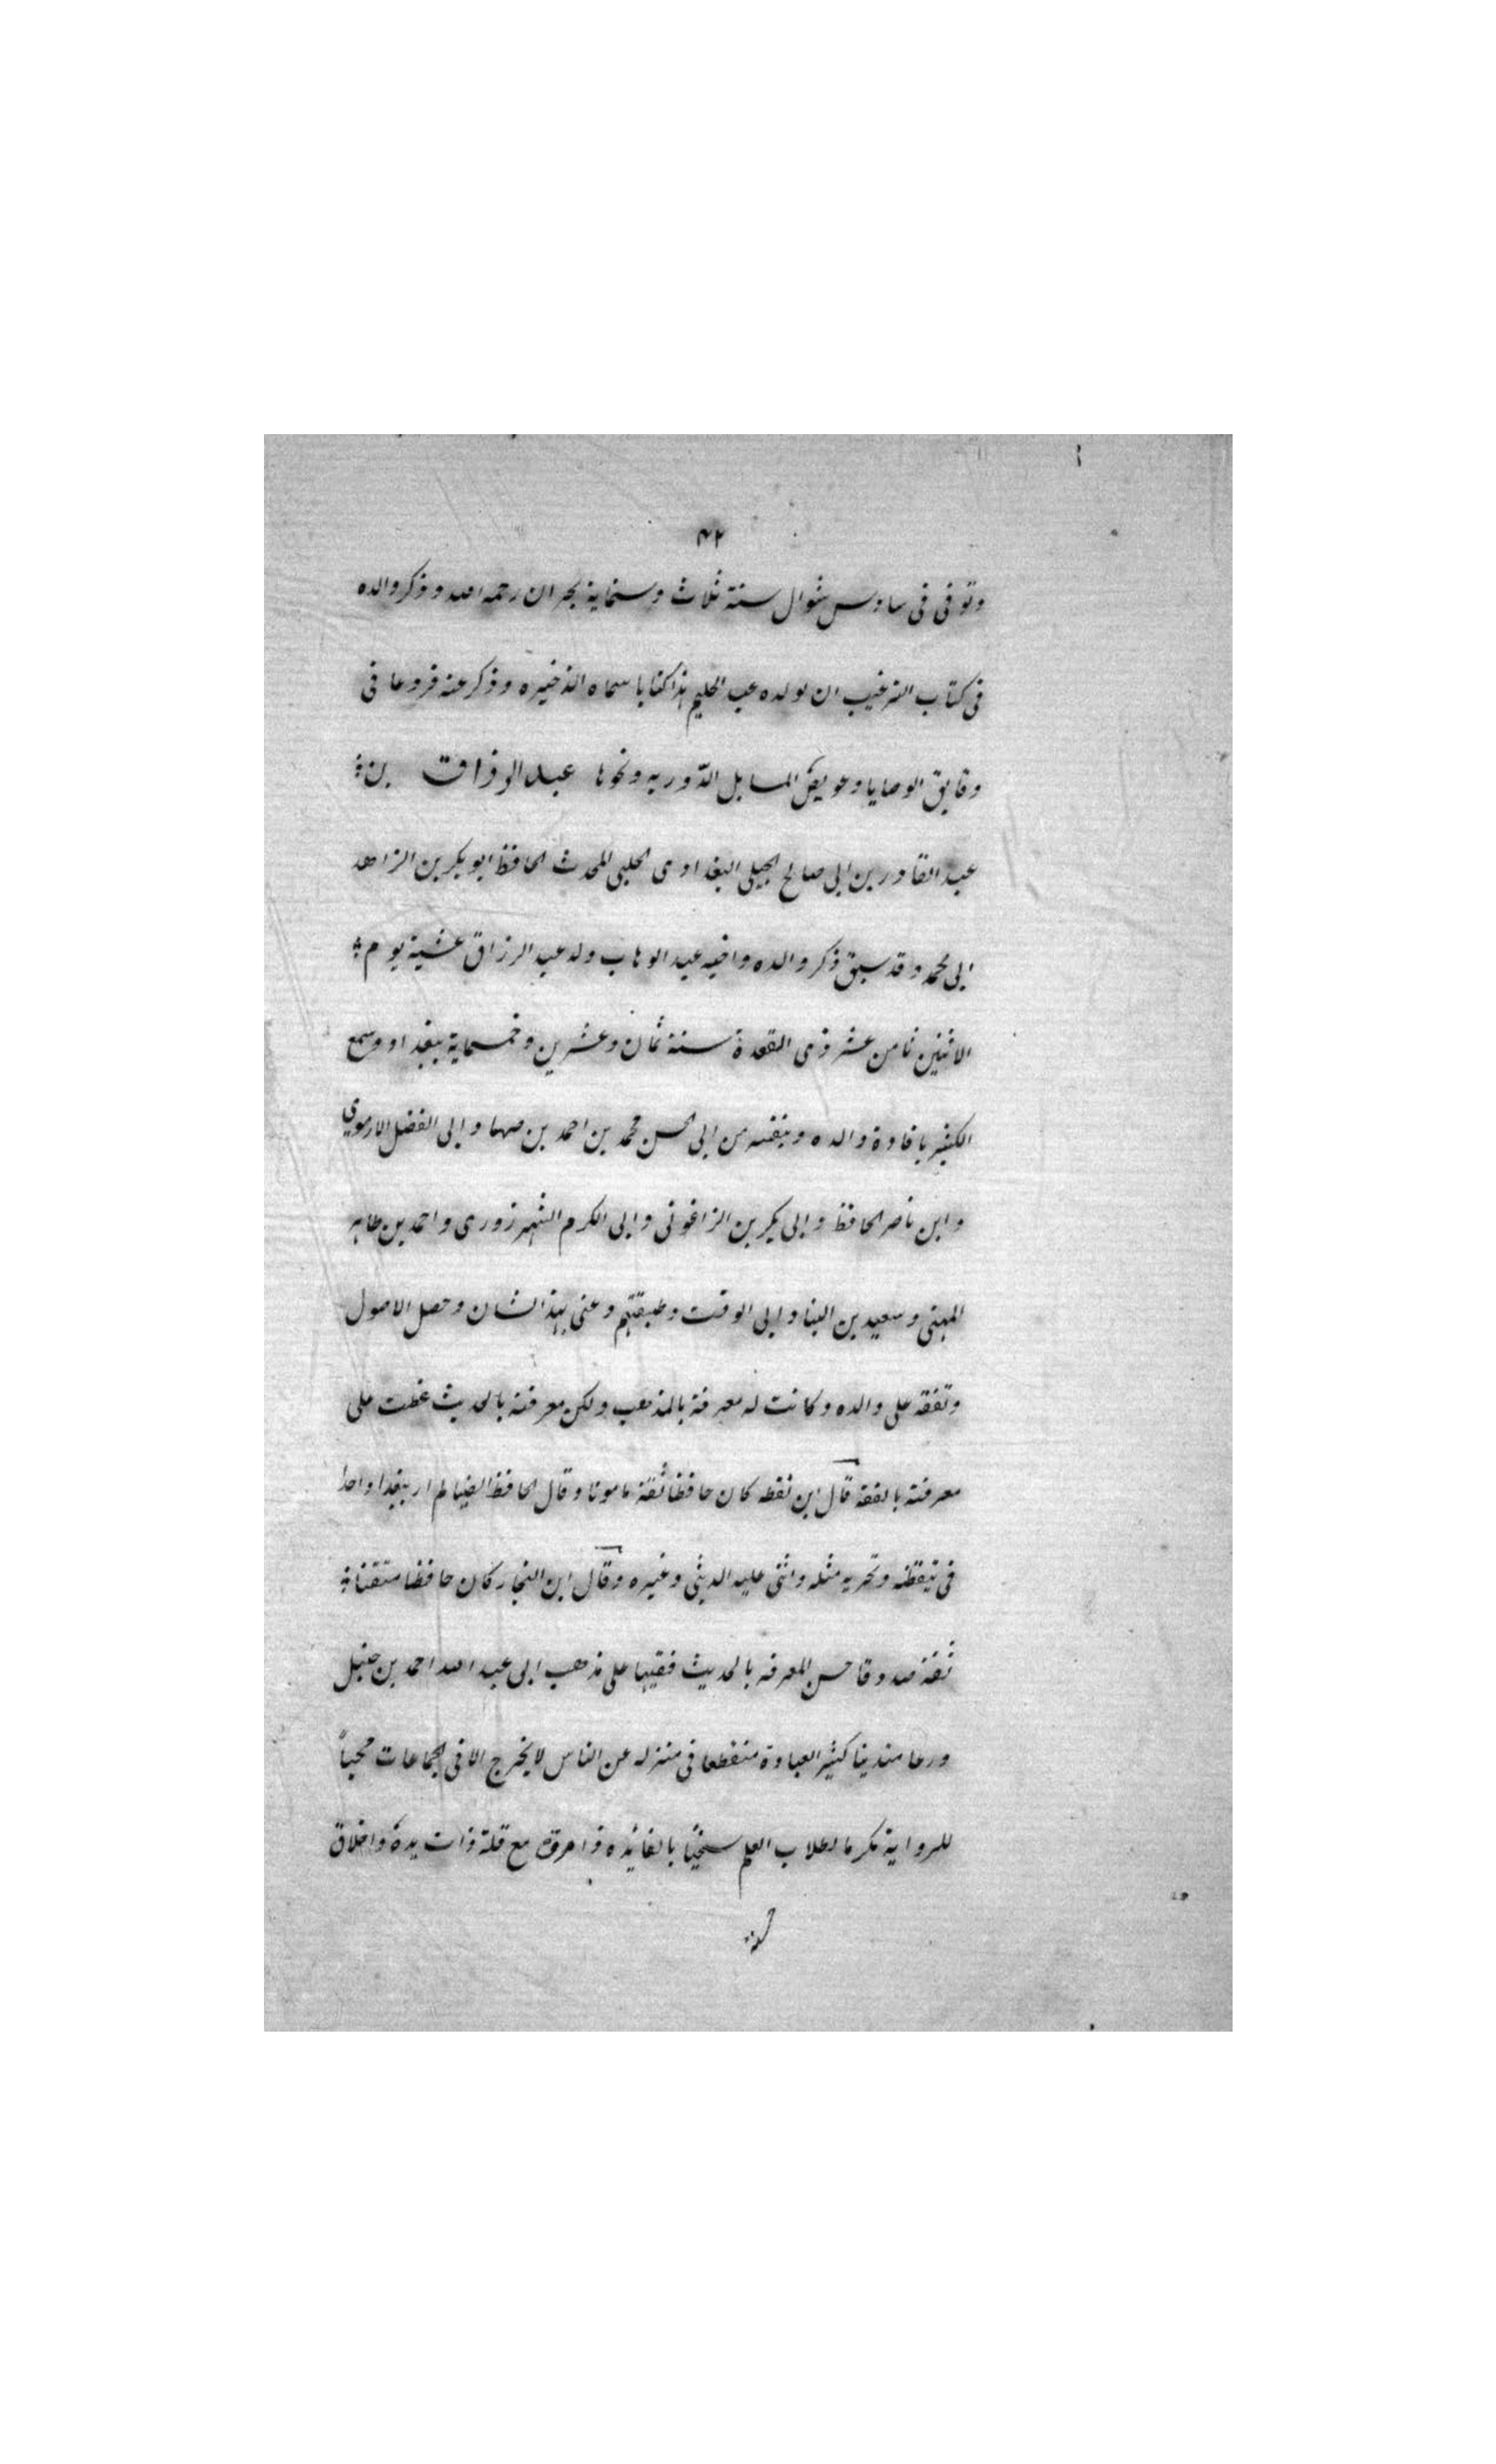 ٤٢
وتوفى فى سادس شوال سنة ثلاث وستماية بحران رحمه الله وذكر والده
فى كتاب الترغيب ان لولده عبد الحليم هذا كتابا سماه الذخيره وذكر عنه فروعا فى
دقايق الوصايا وعويص المسايل الدوريه ونحوها عبد الرزاق بن
عبد القادر بن ابى صالح الجيلى البغدادى الحلبى المحدث الحافظ ابو بكر بن الزاهد
ابى محمد وقد سبق ذكر والده واخيه عبد الوهاب ولد عبد الرزاق عشية يوم
الاثنين ثامن عشر ذى القعدة سنة ثمان وعشرين وخمسماية ببغداد وسمع
الكثير بافادة والده وبنفسه من ابى الحسن محمد بن احمد بن صهما وابى الفضل الارموي
وابن ناصر الحافظ وابى بكر بن الزاغونى وابى الكرم الشهرزورى واحمد بن طاهر
المهنى وسعيد بن البنا وابى الوقت وطبقتهم وعنى بهذا الشان وحصل الاصول
وتفقه على والده وكانت له معرفة بالمذهب ولكن معرفته بالحديث غطت على
معرفته بالفقه قال ابن نقطه كان حافظا ثقة مامونا وقال الحافظ الضيا لم ار ببغداد احدا
فى تيقظه وتحريه مثله واثنى عليه الدبيثى وغيره وقال ابن النجار كان حافظا متقنا
ثقة صدوقا حسن المعرفه بالحديث فقيها على مذهب ابى عبد الله احمد بن حنبل
ورعا متدينا كثير العبادة منقطعا فى منزله عن الناس لا يخرج الا فى الجماعات محباً
للرواية مكرما لطلاب العلم سخيًا بالفائده ذا مروة مع قلة ذات يده واخلاق